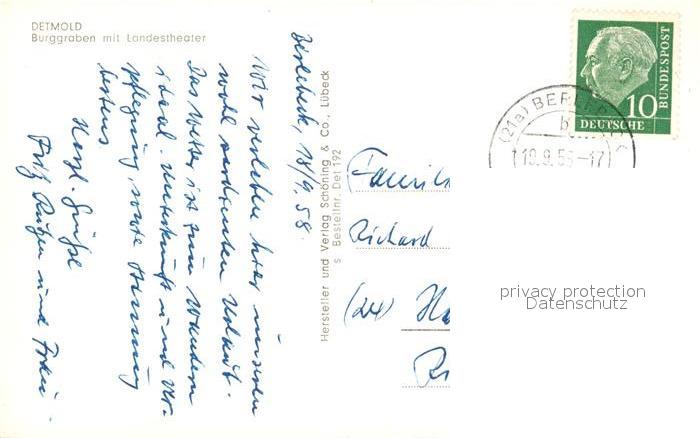 DETMOLD
Burggraben mit Landestheater
Berlebeck, 18/9. 58.
Wir verleben hier unseren
wohlverdienten Urlaub.
Das Wetter ist zum Wandern
ideal. Unterkunft und Ver-
pflegung, sowie Stimmung
bestens
Herzl. Grüße
Fritz und Frau
Hersteller und Verlag Schöning & Co., Lübeck
S Bestellnr. Det 192
DEUTSCHE
BUNDESPOST
10
(21a) BERLEBECK
b
Familie
Richard
(24)
privacy protection
Datenschutz